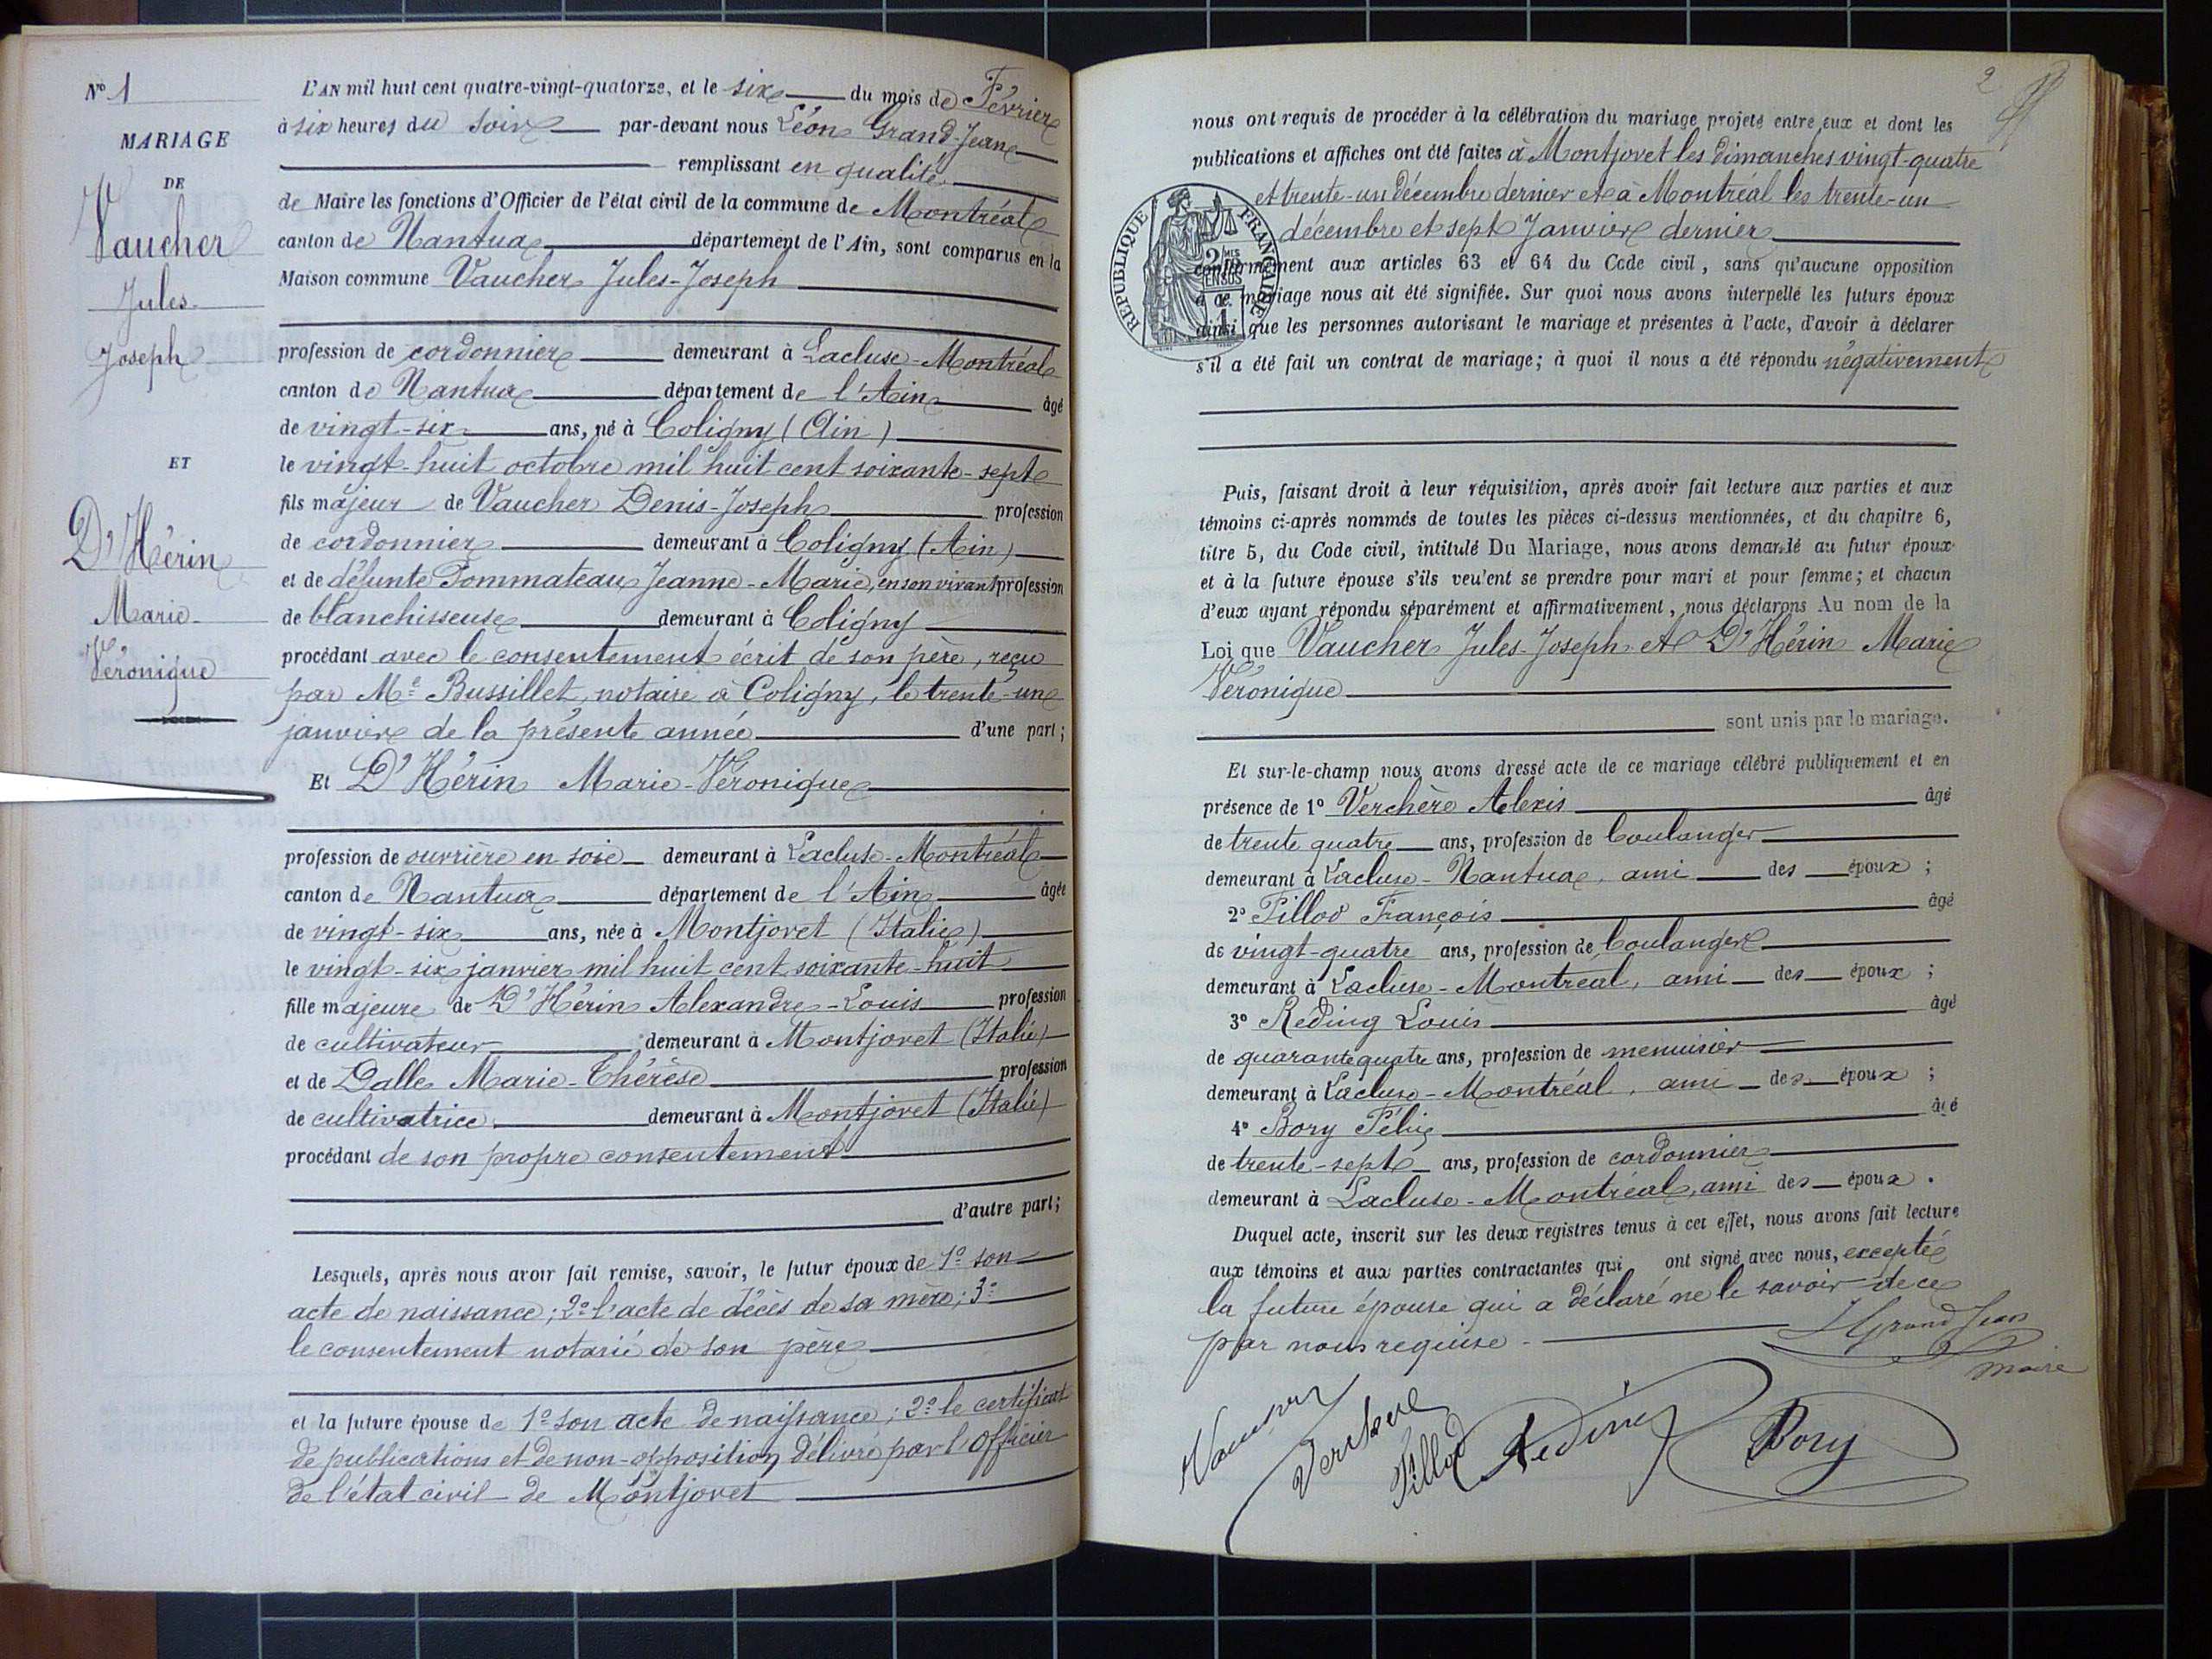 N° 1
MARIAGE
DE
Vaucher
Jules
Joseph
ET
D'Hérin
Marie
Véronique
L'AN mil huit cent quatre-vingt-quatorze, et le six du mois de Février
à six heures du soir par-devant nous Léon Grand-Jean
remplissant en qualité
de Maire les fonctions d'Officier de l'état civil de la commune de Montréal
canton de Nantua département de l'Ain, sont comparus en la
Maison commune Vaucher Jules-Joseph
profession de cordonnier demeurant à Lacluse-Montréal
canton de Nantua département de l'Ain âgé
de vingt-six ans, né à Coligny (Ain)
le vingt-huit octobre mil huit cent soixante-sept
fils majeur de Vaucher Denis-Joseph profession
de cordonnier demeurant à Coligny (Ain)
et de défunte Pommateau Jeanne-Marie, en son vivant profession
de blanchisseuse demeurant à Coligny
procédant avec le consentement écrit de son père, reçu
par Me Bussillet, notaire à Coligny, le trente-un
janvier de la présente année d'une part;
Et D'Hérin Marie-Véronique
profession de ouvrière en soie demeurant à Lacluse-Montréal
canton de Nantua département de l'Ain âgée
de vingt-six ans, née à Montjovet (Italie)
le vingt-six janvier mil huit cent soixante-huit
fille majeure de D'Hérin Alexandre-Louis profession
de cultivateur demeurant à Montjovet (Italie)
et de Dalle Marie-Thérèse profession
de cultivatrice demeurant à Montjovet (Italie)
procédant de son propre consentement
d'autre part;
Lesquels, après nous avoir fait remise, savoir, le futur époux de 1° son
acte de naissance; 2° l'acte de décès de sa mère; 3°
le consentement notarié de son père
et la future épouse de 1° son acte de naissance; 2° le certificat
de publications et de non-opposition délivré par l'Officier
de l'état civil de Montjovet
2
nous ont requis de procéder à la célébration du mariage projeté entre eux et dont les
publications et affiches ont été faites à Montjovet les dimanches vingt-quatre
et trente-un décembre dernier et à Montréal les trente-un
décembre et sept Janvier dernier
RÉPUBLIQUE FRANÇAISE
2/10MES
EN SUS
1F
conformément aux articles 63 et 64 du Code civil, sans qu'aucune opposition
à ce mariage nous ait été signifiée. Sur quoi nous avons interpellé les futurs époux
ainsi que les personnes autorisant le mariage et présentes à l'acte, d'avoir à déclarer
s'il a été fait un contrat de mariage; à quoi il nous a été répondu négativement
Puis, faisant droit à leur réquisition, après avoir fait lecture aux parties et aux
témoins ci-après nommés de toutes les pièces ci-dessus mentionnées, et du chapitre 6,
titre 5, du Code civil, intitulé Du Mariage, nous avons demandé au futur époux
et à la future épouse s'ils veulent se prendre pour mari et pour femme; et chacun
d'eux ayant répondu séparément et affirmativement, nous déclarons Au nom de la
Loi que Vaucher Jules-Joseph et D'Hérin Marie
Véronique
sont unis par le mariage.
Et sur-le-champ nous avons dressé acte de ce mariage célébré publiquement et en
présence de 1° Verchère Alexis âgé
de trente quatre ans, profession de boulanger
demeurant à Lacluse-Nantua, ami des époux;
2° Pillod François âgé
de vingt-quatre ans, profession de boulanger
demeurant à Lacluse-Montréal, ami des époux;
3° Réding Louis âgé
de quarante quatre ans, profession de menuisier
demeurant à Lacluse-Montréal, ami des époux;
4° Bory Félix âgé
de trente-sept ans, profession de cordonnier
demeurant à Lacluse-Montréal, ami des époux.
Duquel acte, inscrit sur les deux registres tenus à cet effet, nous avons fait lecture
aux témoins et aux parties contractantes qui ont signé avec nous, excepté
la future épouse qui a déclaré ne le savoir de ce
par nous requise.
LGrand Jean
maire
Vaucher
Verchere
Pillod
Reding
Bory